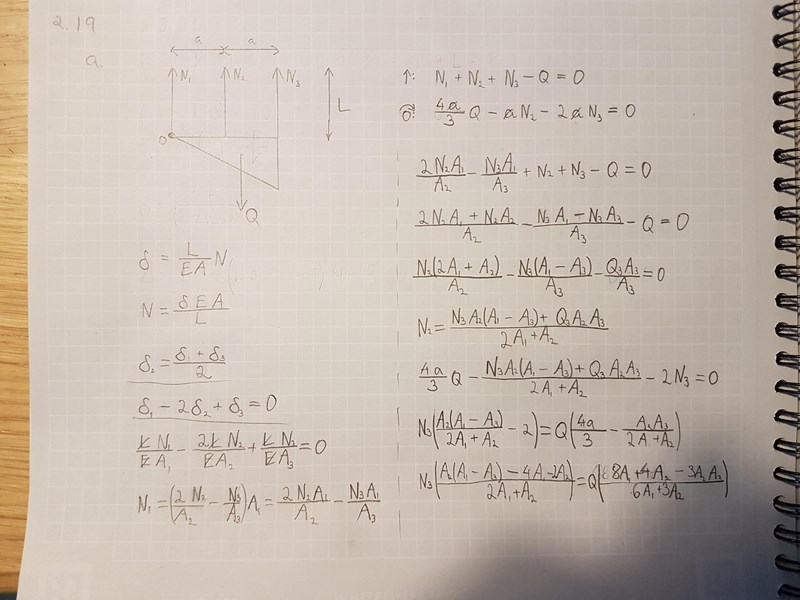 2.19
a.
a a
N₁ N₂ N₃
L
O
Q
δ = L/(EA) N
N = δEA/L
δ₂ = (δ₁ + δ₃)/2
δ₁ - 2δ₂ + δ₃ = 0
L N₁/(E A₁) - 2L N₂/(E A₂) + L N₃/(E A₃) = 0
N₁ = (2 N₂/A₂ - N₃/A₃)A₁ = 2 N₂A₁/A₂ - N₃A₁/A₃
↑: N₁ + N₂ + N₃ - Q = 0
O: 4a/3 Q - aN₂ - 2aN₃ = 0
2N₂A₁/A₂ - N₃A₁/A₃ + N₂ + N₃ - Q = 0
(2N₂A₁ + N₂A₂)/A₂ - (N₃A₁ - N₃A₃)/A₃ - Q = 0
N₂(2A₁ + A₂)/A₂ - N₃(A₁ - A₃)/A₃ - Q₃A₃/A₃ = 0
N₂ = (N₃A₂(A₁ - A₃) + Q₃A₂A₃)/(2A₁ + A₂)
4a/3 Q - (N₃A₂(A₁ - A₃) + Q₃A₂A₃)/(2A₁ + A₂) - 2N₃ = 0
N₃(A₂(A₁ - A₃)/(2A₁ + A₂) - 2) = Q(4a/3 - A₂A₃/(2A + A₂))
N₃((A₂(A₁ - A₃) - 4A₁ - 2A₂)/(2A₁ + A₂)) = Q((8A₁ + 4A₂ - 3A₂A₃)/(6A₁ + 3A₂))